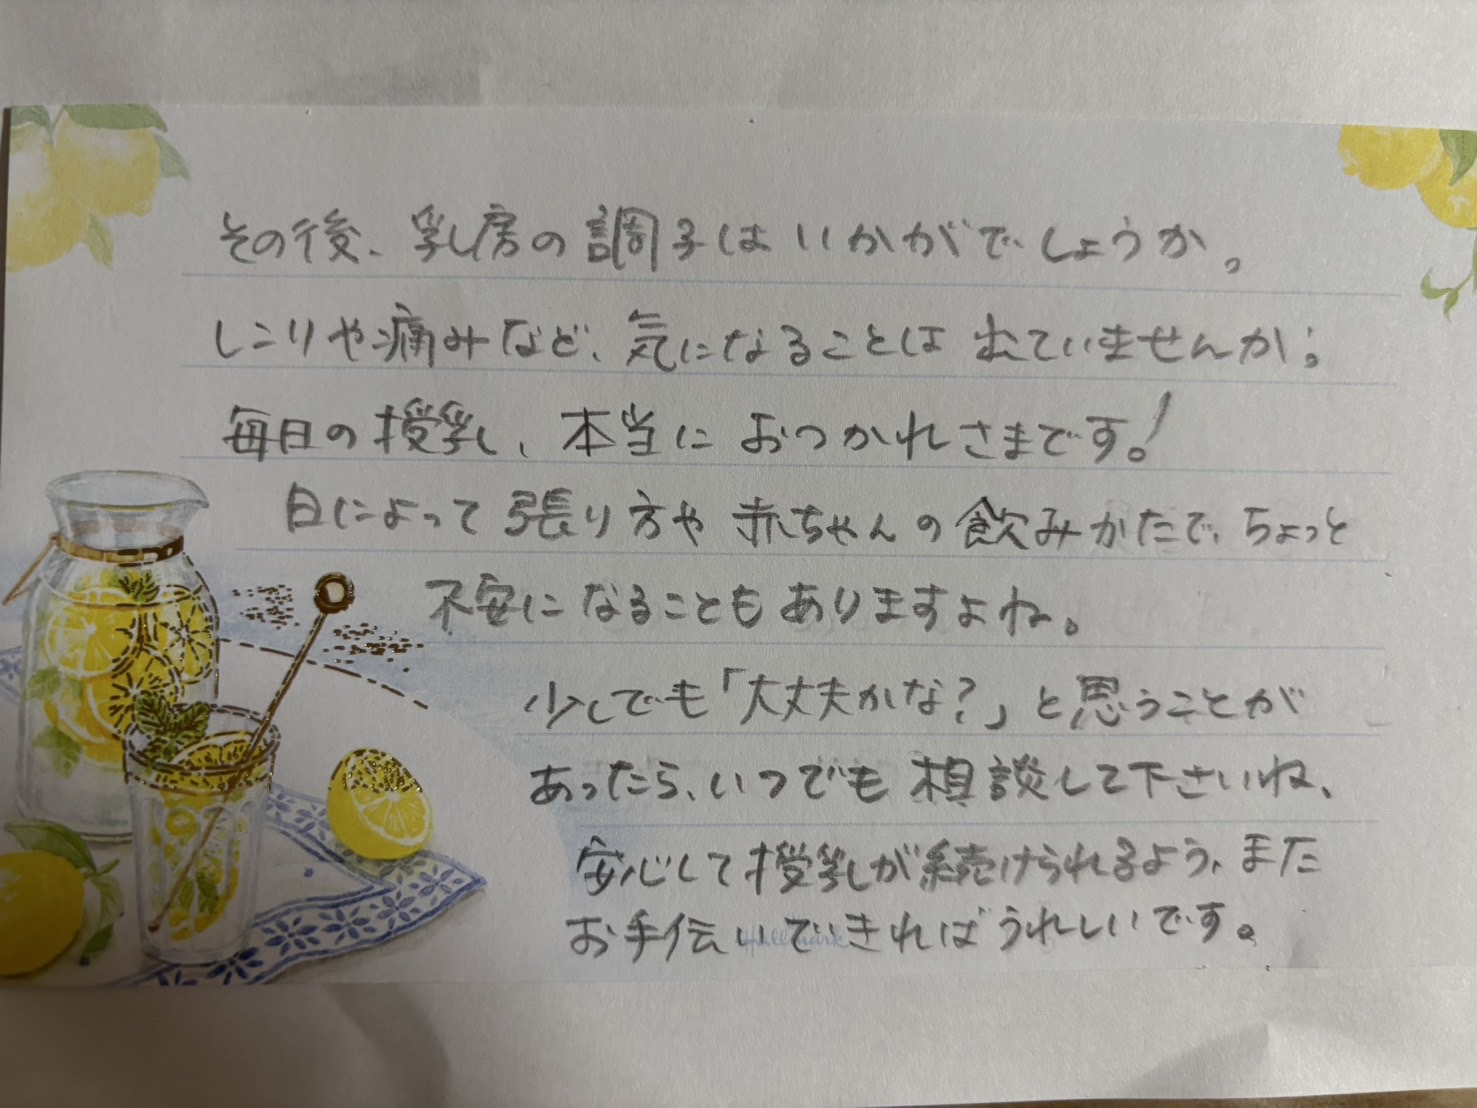 その後、乳房の調子はいかがでしょうか。
しこりや痛みなど、気になることは出ていませんか。
毎日の授乳、本当におつかれさまです!
日によって張り方や赤ちゃんの飲みかたで、ちょっと
不安になることもありますよね。
少しでも「大丈夫かな?」と思うことが
あったら、いつでも相談して下さいね、
安心して授乳が続けられるよう、また
お手伝いできればうれしいです。
Hallmark